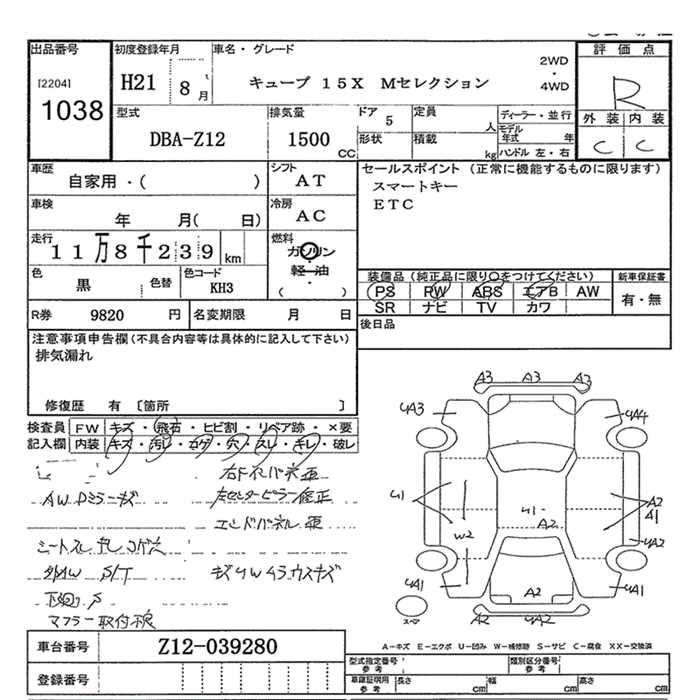 出品番号
[2204]
1038
初度登録年月
H21 8月
車名・グレード
キューブ 15X Mセレクション
2WD
・
4WD
評価点
R
外装 内装
C C
型式
DBA-Z12
排気量
1500
CC
ドア 5
形状
定員
人
積載
kg
ディーラー・並行
モデル年式 年
ハンドル 左・右
車歴
自家用・( )
シフト
AT
車検
年 月( 日)
冷房
AC
走行
11万8千239 km
燃料
ガソリン
軽・油
・
( )
色
黒
色替
色コード
KH3
セールスポイント (正常に機能するものに限ります)
スマートキー
ETC
装備品 (純正品に限り○をつけてください)
PS PW ABS エアB AW
SR ナビ TV カワ
新車保証書
有・無
R券 9820 円
名変期限 月 日
後日品
注意事項申告欄(不具合内容等は具体的に記入して下さい)
排気漏れ
修復歴 有 〔箇所 〕
検査員記入欄
FW キズ・飛石・ヒビ割・リペア跡・×要
内装 キズ・汚レ・コゲ・穴・スレ・キレ・破レ
左センターピラー修正
エンドパネル歪
外AW S/T
マフラー取付不良
A3 A3 A3
4A3 4A4
41 W2 41 A2
A2 41
4A2
4A1 4A1
A2
A2 4A2
スペア
A－キズ E－エクボ U－凹み W－補修跡 S－サビ C－腐食 XX－交換済
車台番号
Z12-039280
登録番号
型式指定番号
参考
類別区分番号
参考
車庫証明用
参考
長さ cm
幅 cm
高さ cm